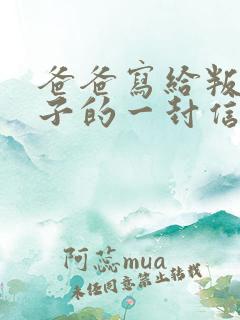 爸爸寫給叛
子的一封信
阿蕊mua
未經同意禁止轉載